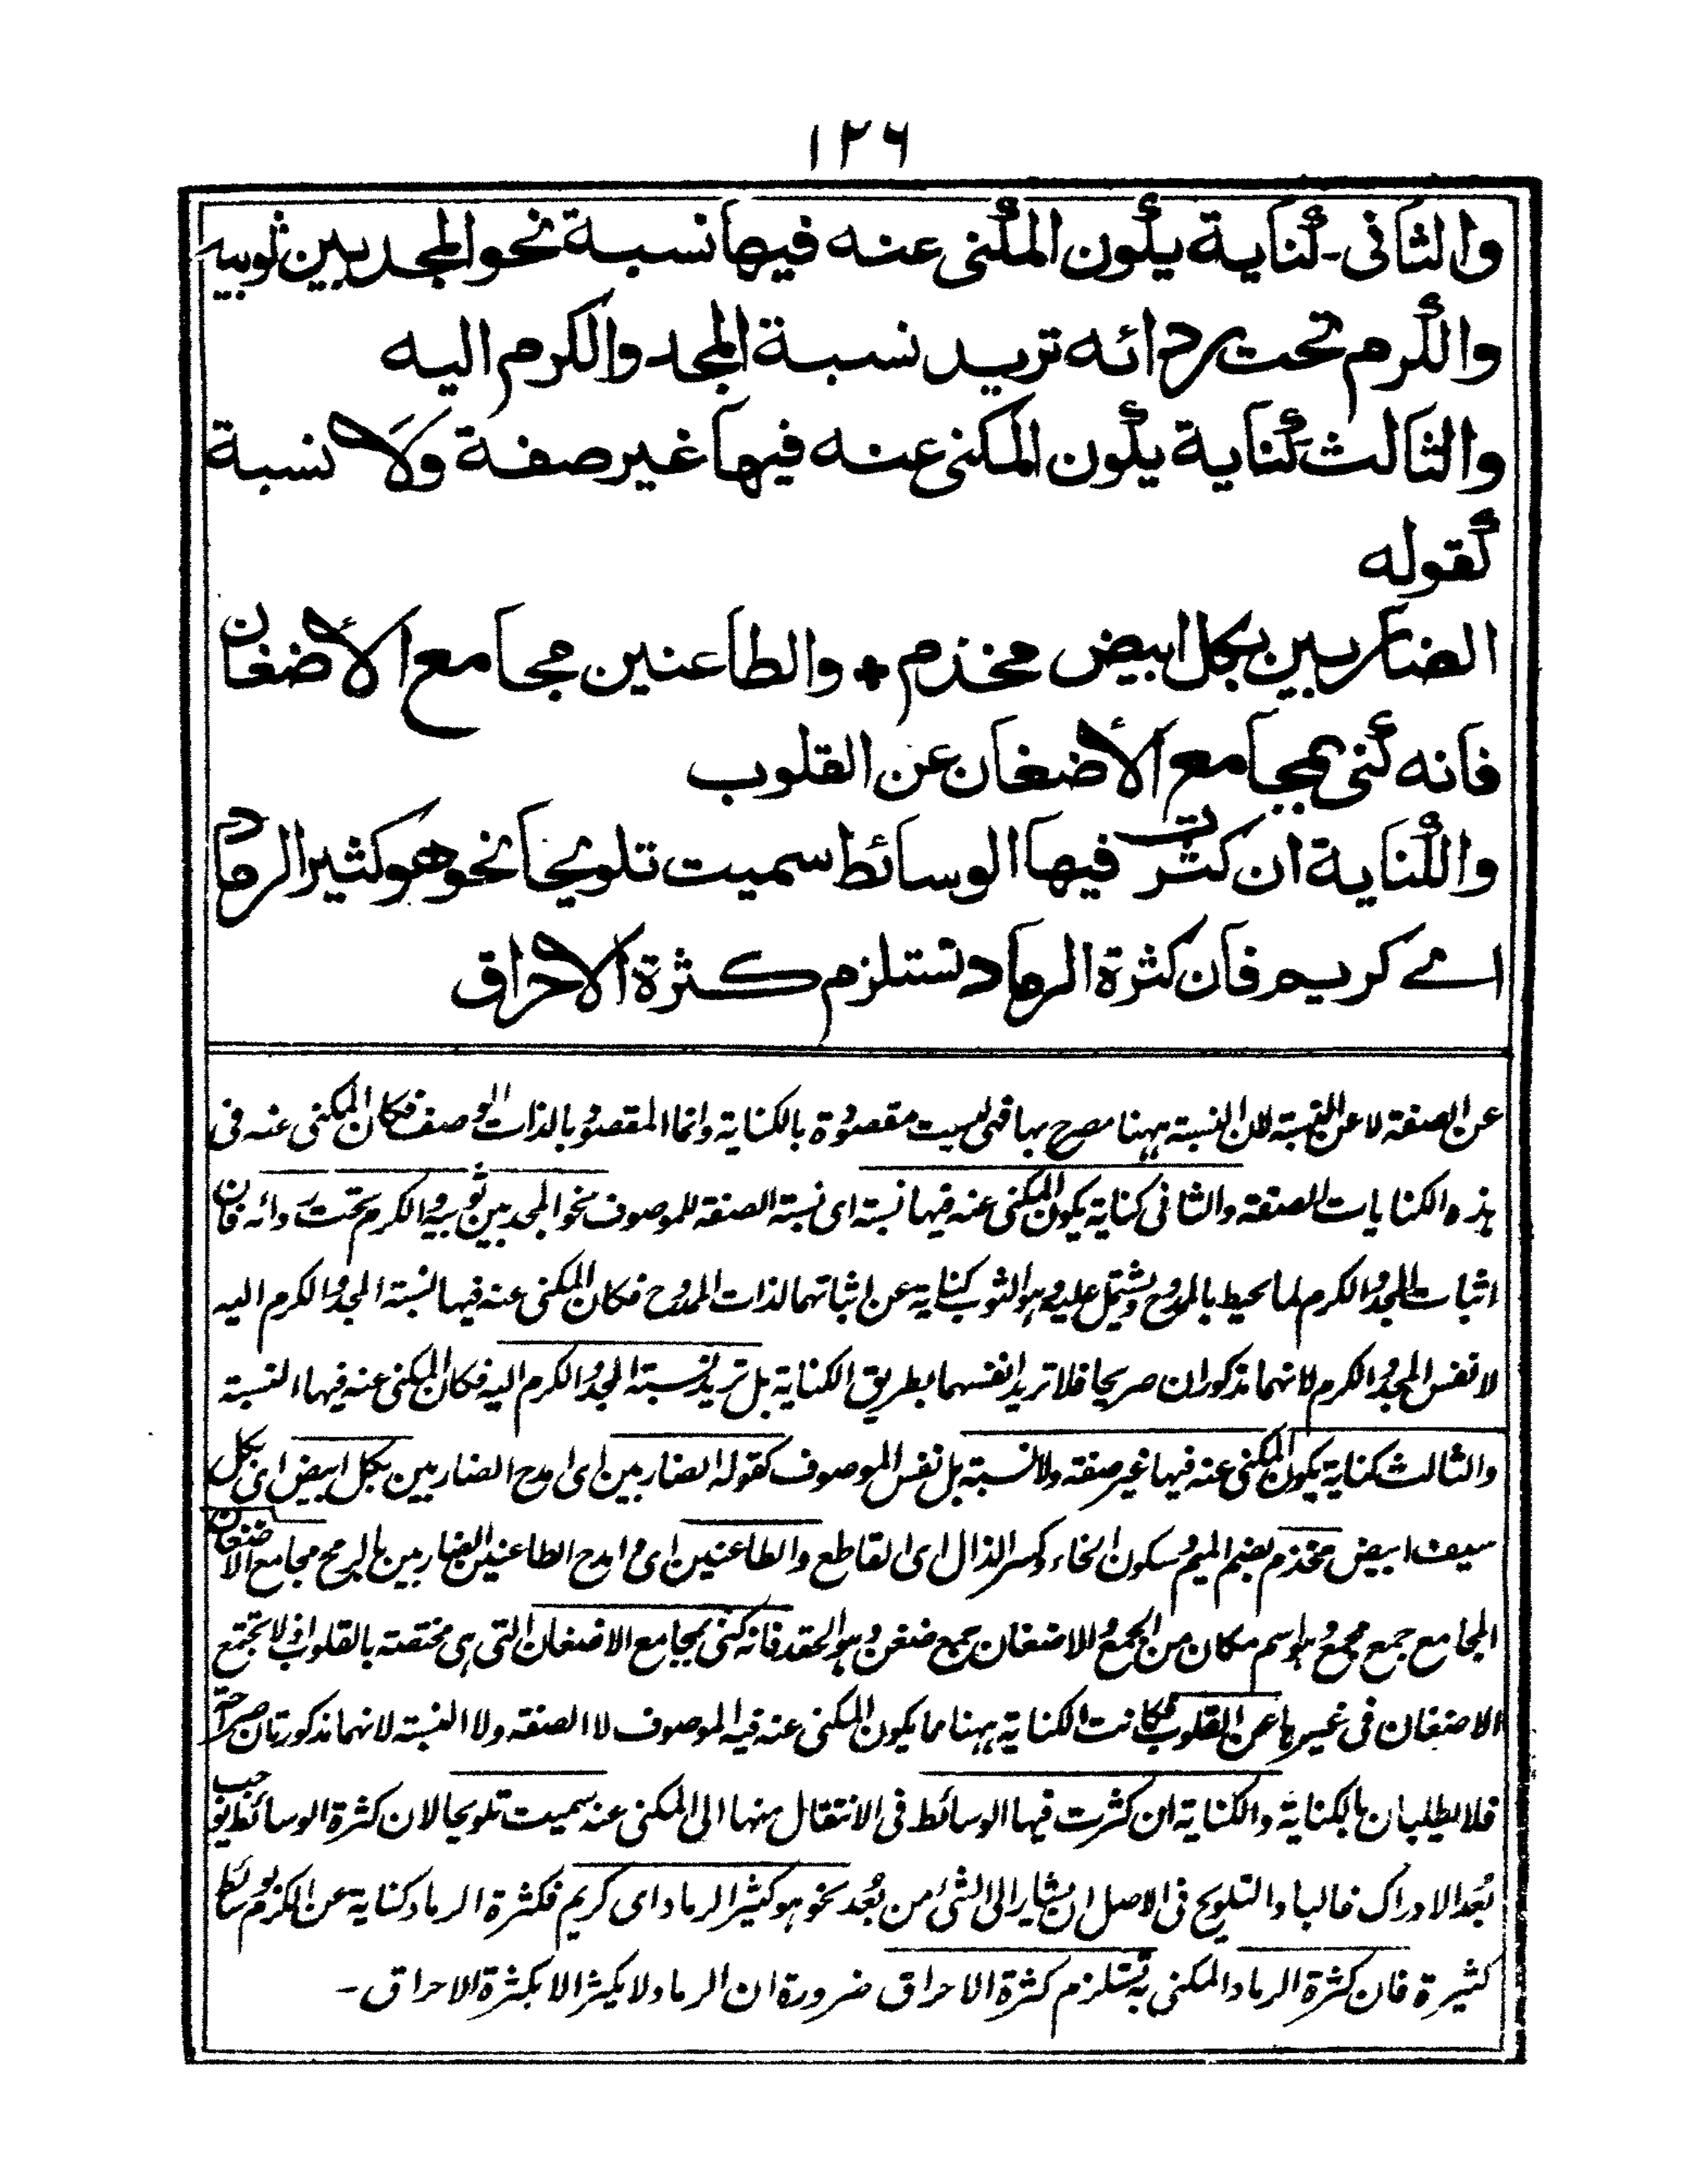 ١٢٦
والثانى - كناية يكون المكنى عنه فيها نسبة نحو المجد بين ثوبيه
والكرم تحت ردائه تريد نسبة المجد والكرم اليه
والثالث كناية يكون المكنى عنه فيها غير صفة ولا نسبة
كقوله
الضاربين بكل ابيض مخذم + والطاعنين مجامع الأضغان
فانه كنى بمجامع الأضغان عن القلوب
والكناية ان كثرت فيها الوسائط سميت تلويحا نحو هو كثير الرماد
اے كريم فان كثرة الرماد تستلزم كثرة الاحراق
عن الصفة لا عن النسبة لان النسبة ههنا مصرح بها فهى ليست مقصودة بالكناية وانما المقصود بالذات الوصف فكان المكنى عنه فى
هذه الكنايات الصفة والثانى كناية يكون المكنى عنه فيها نسبة اى نسبة الصفة للموصوف نحو المجد بين ثوبيه والكرم تحت ردائه فان
اثبات المجد والكرم لما يحيط بالممدوح ويشتمل عليه وهو الثوب كناية عن اثباتهما لذات الممدوح فكان المكنى عنه فيها نسبة المجد والكرم اليه
لا نفس المجد والكرم لانهما مذكوران صريحا فلا تريد انفسهما بطريق الكناية بل تريد نسبة المجد والكرم اليه فكان المكنى عنه فيها النسبة
والثالث كناية يكون المكنى عنه فيها غير صفة ولا نسبة بل نفس الموصوف كقوله الضاربين اى امدح الضاربين بكل ابيض اى بكل
سيف ابيض مخذم بضم الميم وسكون الخاء وكسر الذال اى القاطع والطاعنين اى وامدح الطاعنين الضاربين بالرمح مجامع الاضغان
المجامع جمع مجمع وهو اسم مكان من الجمع والاضغان جمع ضغن وهو الحقد فانه كنى بمجامع الاضغان التى هى مختصة بالقلوب اذ لا تجتمع
الاضغان فى غيرها عن القلوب فكانت الكناية ههنا مما يكون المكنى عنه فيه الموصوف لا الصفة ولا النسبة لانهما مذكورتان صراحة
فلا يطلبان بالكناية والكناية ان كثرت فيها الوسائط فى الانتقال منها الى المكنى عنه سميت تلويحا لان كثرة الوسائط يوجب
بُعد الادراك غالبا والتلويح فى الاصل ان يشار الى الشئ من بُعد نحو هو كثير الرماد اى كريم فكثرة الرماد كناية عن الكرم بوسائط
كثيرة فان كثرة الرماد المكنى به تستلزم كثرة الاحراق ضرورة ان الرماد لا يكثر الا بكثرة الاحراق -